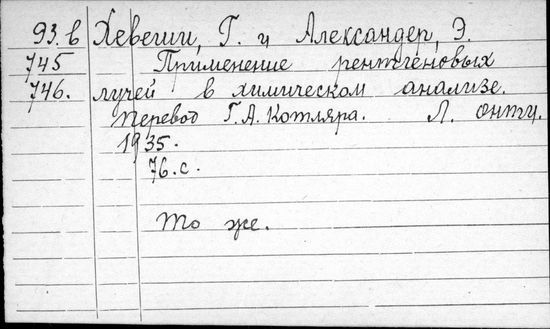 93.в Хевеши, Г. и Александер, Э.
745 Применение рентгеновых
746. лучей в химическом анализе.
Перевод Г.А.Котляра. Л. ОНТИ.
1935.
76.с.
То же.